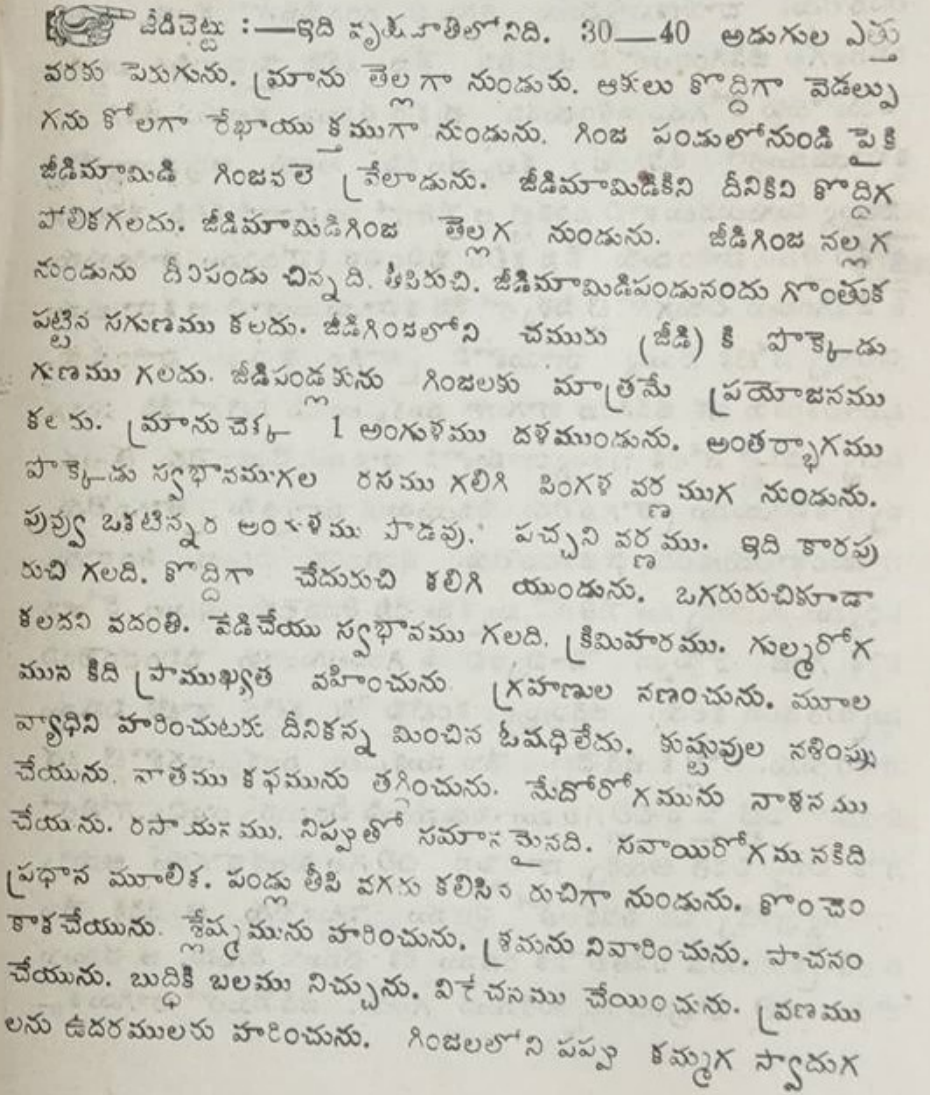 జీడిచెట్టు :—ఇది వృక్షజాతిలోనిది. 30—40 అడుగుల ఎత్తు
వరకు పెరుగును. మ్రాను తెల్లగా నుండును. ఆకులు కొద్దిగా వెడల్పు
గను కోలగా రేఖాయుక్తముగా నుండును. గింజ పండులోనుండి పైకి
జీడిమామిడి గింజవలె వ్రేలాడును. జీడిమామిడికిని దీనికిని కొద్దిగ
పోలికగలదు. జీడిమామిడిగింజ తెల్లగ నుండును. జీడిగింజ నల్లగ
నుండును దీనిపండు చిన్నది. తీపిరుచి. జీడిమామిడిపండునందు గొంతుక
పట్టిన సగుణము కలదు. జీడిగింజలోని చమురు (జీడి) కి పొక్కెడు
గుణము గలదు. జీడిపండ్లకును గింజలకు మాత్రమే ప్రయోజనము
కలదు. మ్రానుచెక్క 1 అంగుళము దళముండును. అంతర్భాగము
పొక్కెడు స్వభావముగల రసము గలిగి పింగళ వర్ణముగ నుండును.
పువ్వు ఒకటిన్నర అంగుళము పొడవు. పచ్చని వర్ణము. ఇది కారపు
రుచి గలది. కొద్దిగా చేదురుచి కలిగి యుండును. ఒగరురుచికూడా
కలదని వదంతి. వేడిచేయు స్వభావము గలది. క్రిమిహరము. గుల్మరోగ
మున కిది ప్రాముఖ్యత వహించును. గ్రహణుల నణంచును. మూల
వ్యాధిని హరించుటకు దీనికన్న మించిన ఓషధిలేదు. కుష్టువుల నశింపు
చేయును. వాతము కఫమును తగ్గించును. మేదోరోగమును నాశనము
చేయును. రసాయనము. నిప్పుతో సమానమైనది. సవాయిరోగమునకిది
ప్రధాన మూలిక. పండ్లు తీపి వగరు కలిసిన రుచిగా నుండును. కొంచెం
కాకచేయును. శ్లేష్మమును హరించును. శ్రమను నివారించును. పాచనం
చేయును. బుద్ధికి బలము నిచ్చును. విరేచనము చేయించును. వ్రణము
లను ఉదరములను హరించును. గింజలలోని పప్పు కమ్మగ స్వాదుగ